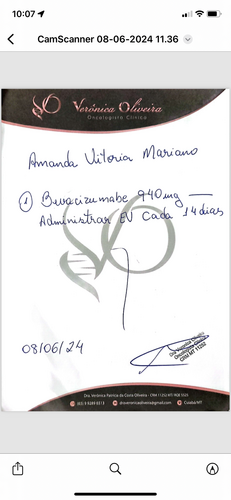 10:07
CamScanner 08-06-2024 11.36
Verônica Oliveira
Oncologista Clínica
Amanda Vitoria Mariano
① Bevacizumabe 940mg —
Administrar EV Cada 14 dias
08/06/24
CRM MT 11252
Dra. Verônica Patrícia da Costa Oliveira - CRM 11252 MT
Cuiabá/MT